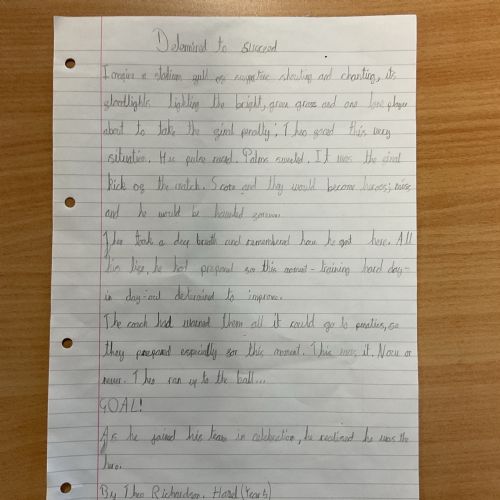 Determined to succeed
Imagine a stadium full of supporters shouting and chanting, its
floodlights lighting the bright, green grass and one lone player
about to take the final penalty; Theo faced this very
situation. His pulse raced. Palms sweated. It was the final
kick of the match. Score and they would become heroes; miss
and he would be haunted forever.
Theo took a deep breath and remembered how he got here. All
his life, he had prepared for this moment - training hard day-
in day-out determined to improve.
The coach had warned them all it could go to penalties, so
they prepared especially for this moment. This was it. Now or
never. Theo ran up to the ball...
GOAL!
As he joined his team in celebration, he realised he was the
hero.
By Theo Richardson, Hard (Year 5)